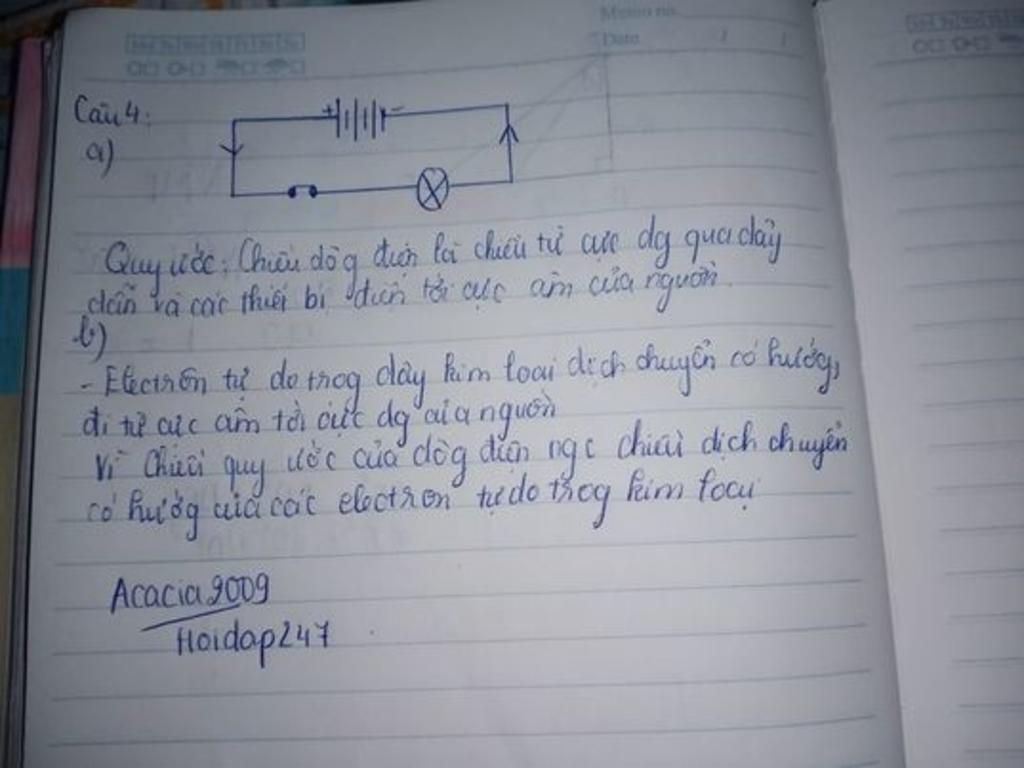 Memo no.
Date / /
Câu 4:
a)
+ -
Quy ước: Chiều dòg điện là chiều từ cực dg qua dây
dẫn và các thiết bị điện tới cực âm của nguồn.
b)
- Electrôn tự do trog dây kim loại dịch chuyển có hướg,
đi từ cực âm tới cực dg của nguồn
Vì chiều quy ước của dòg điện ngc chiều dịch chuyển
có hướg của các electron tự do trog kim loại
Acacia2009
Hoidap247